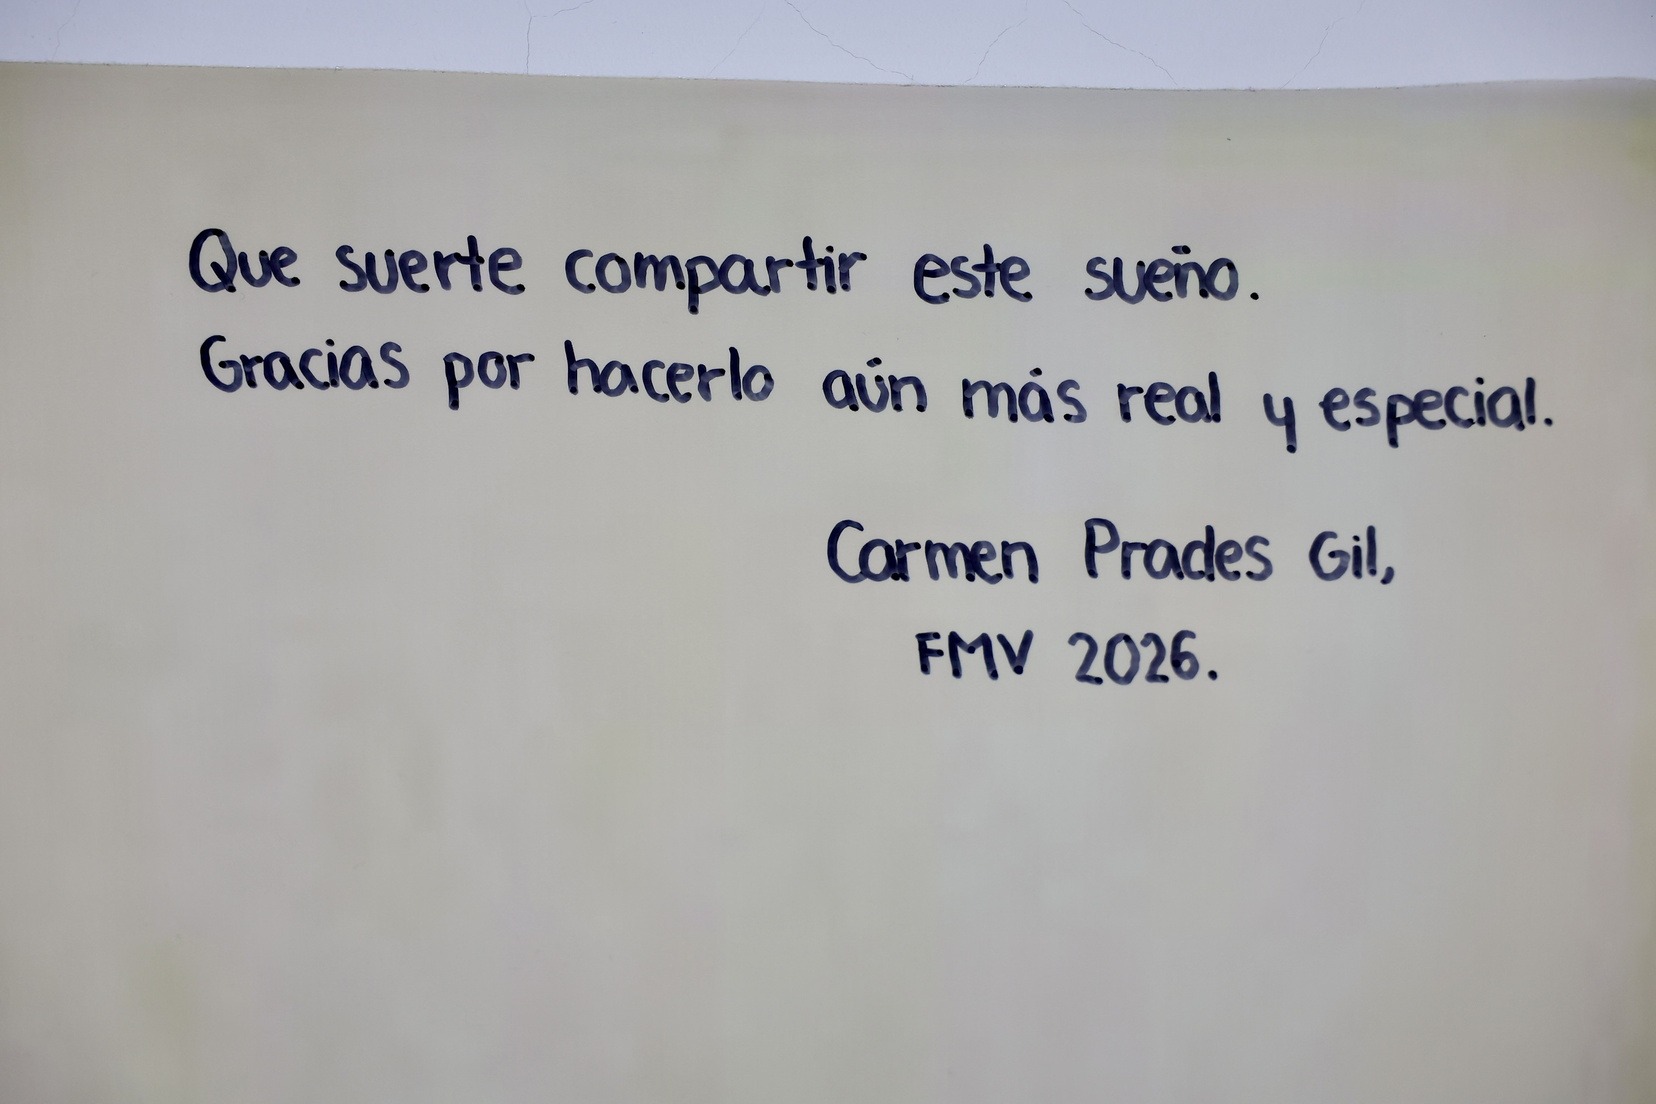 Que suerte compartir este sueño.
Gracias por hacerlo aún más real y especial.
Carmen Prades Gil,
FMV 2026.